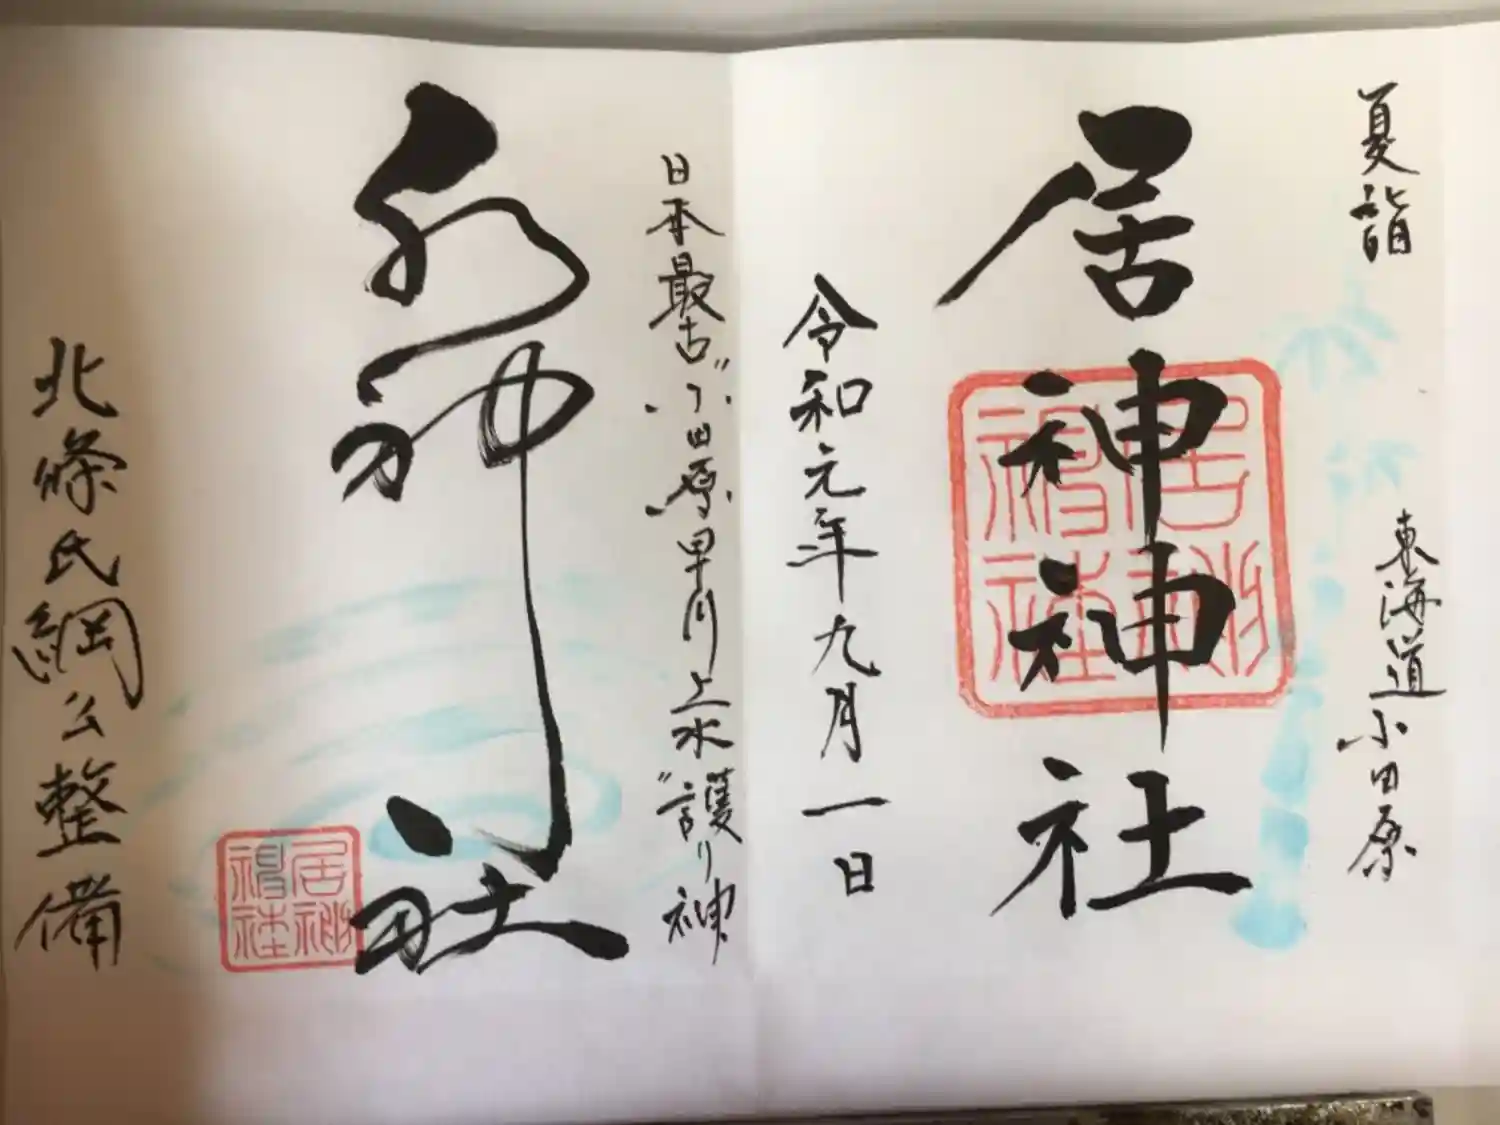 夏詣
東海道小田原
居神神社
居神神社
令和元年九月一日
日本最古〝小田原早川上水〟護り神
水神社
居神神社
北條氏綱公整備